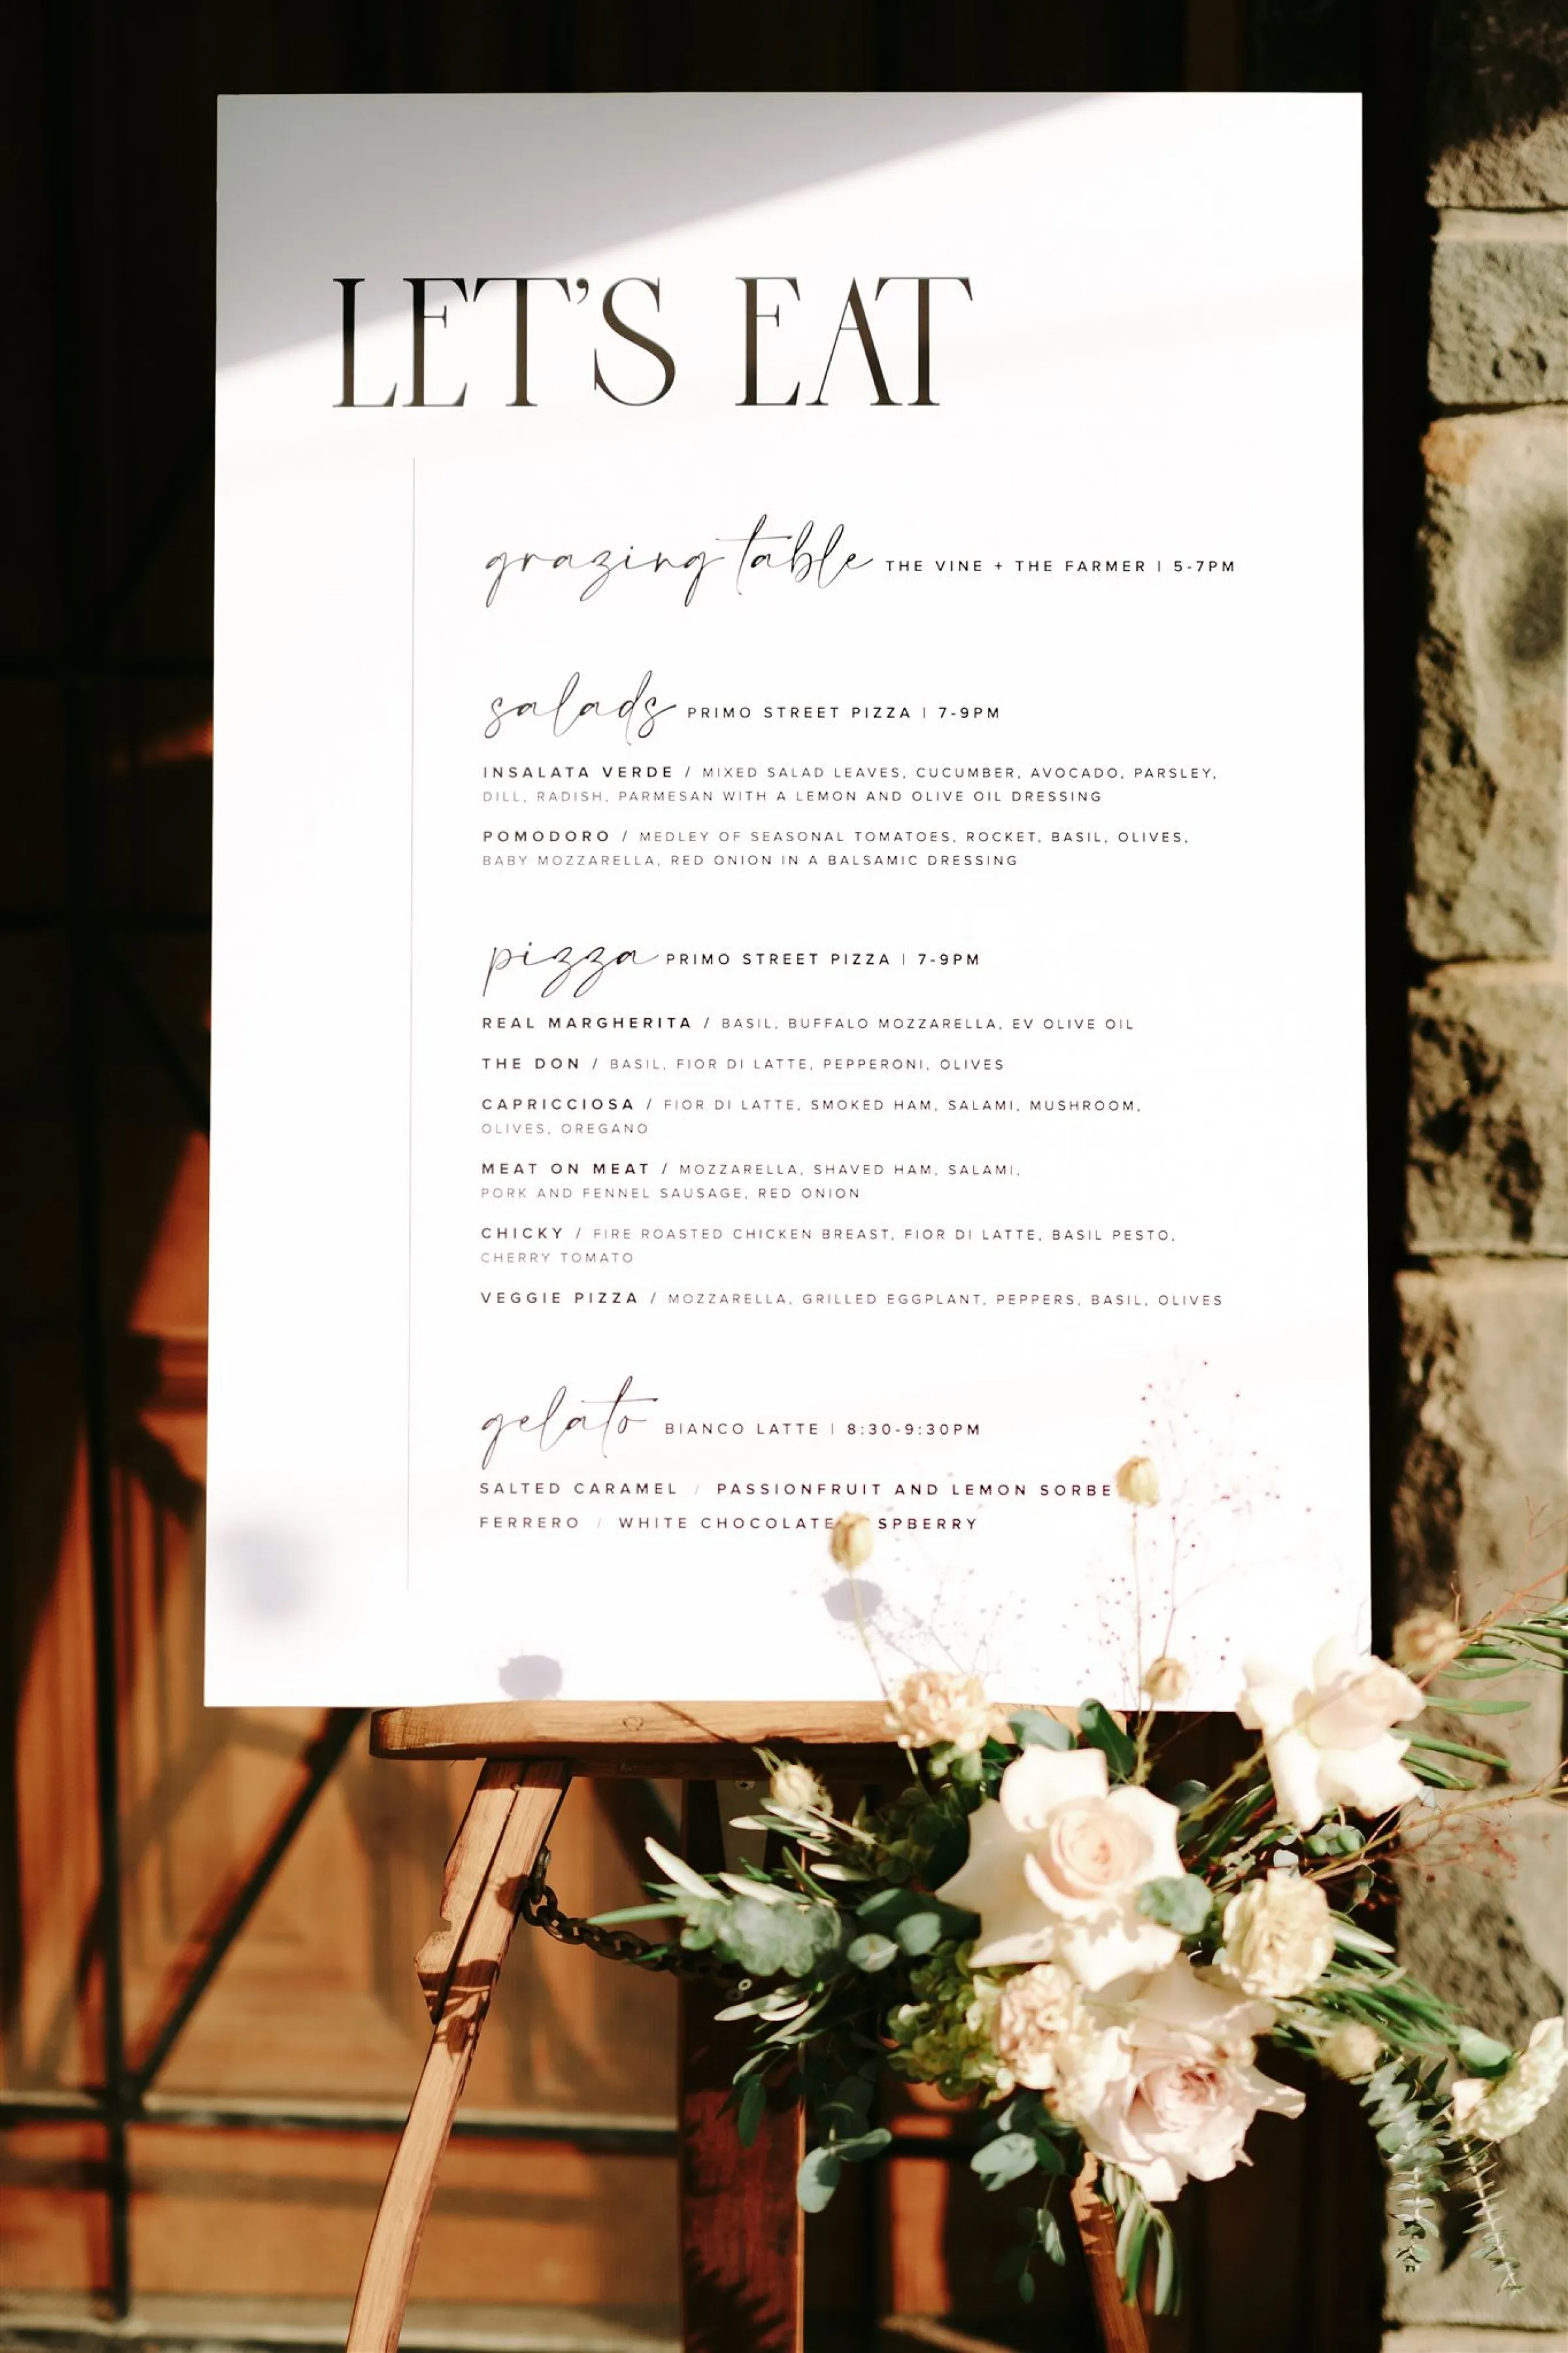 LET'S EAT
grazing table THE VINE + THE FARMER | 5-7PM
salads PRIMO STREET PIZZA | 7-9PM
INSALATA VERDE / MIXED SALAD LEAVES, CUCUMBER, AVOCADO, PARSLEY,
DILL, RADISH, PARMESAN WITH A LEMON AND OLIVE OIL DRESSING
POMODORO / MEDLEY OF SEASONAL TOMATOES, ROCKET, BASIL, OLIVES,
BABY MOZZARELLA, RED ONION IN A BALSAMIC DRESSING
pizza PRIMO STREET PIZZA | 7-9PM
REAL MARGHERITA / BASIL, BUFFALO MOZZARELLA, EV OLIVE OIL
THE DON / BASIL, FIOR DI LATTE, PEPPERONI, OLIVES
CAPRICCIOSA / FIOR DI LATTE, SMOKED HAM, SALAMI, MUSHROOM,
OLIVES, OREGANO
MEAT ON MEAT / MOZZARELLA, SHAVED HAM, SALAMI,
PORK AND FENNEL SAUSAGE, RED ONION
CHICKY / FIRE ROASTED CHICKEN BREAST, FIOR DI LATTE, BASIL PESTO,
CHERRY TOMATO
VEGGIE PIZZA / MOZZARELLA, GRILLED EGGPLANT, PEPPERS, BASIL, OLIVES
gelato BIANCO LATTE | 8:30-9:30PM
SALTED CARAMEL / PASSIONFRUIT AND LEMON SORBE
FERRERO / WHITE CHOCOLATE SPBERRY